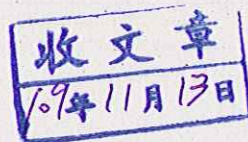 收文章
109年11月13日